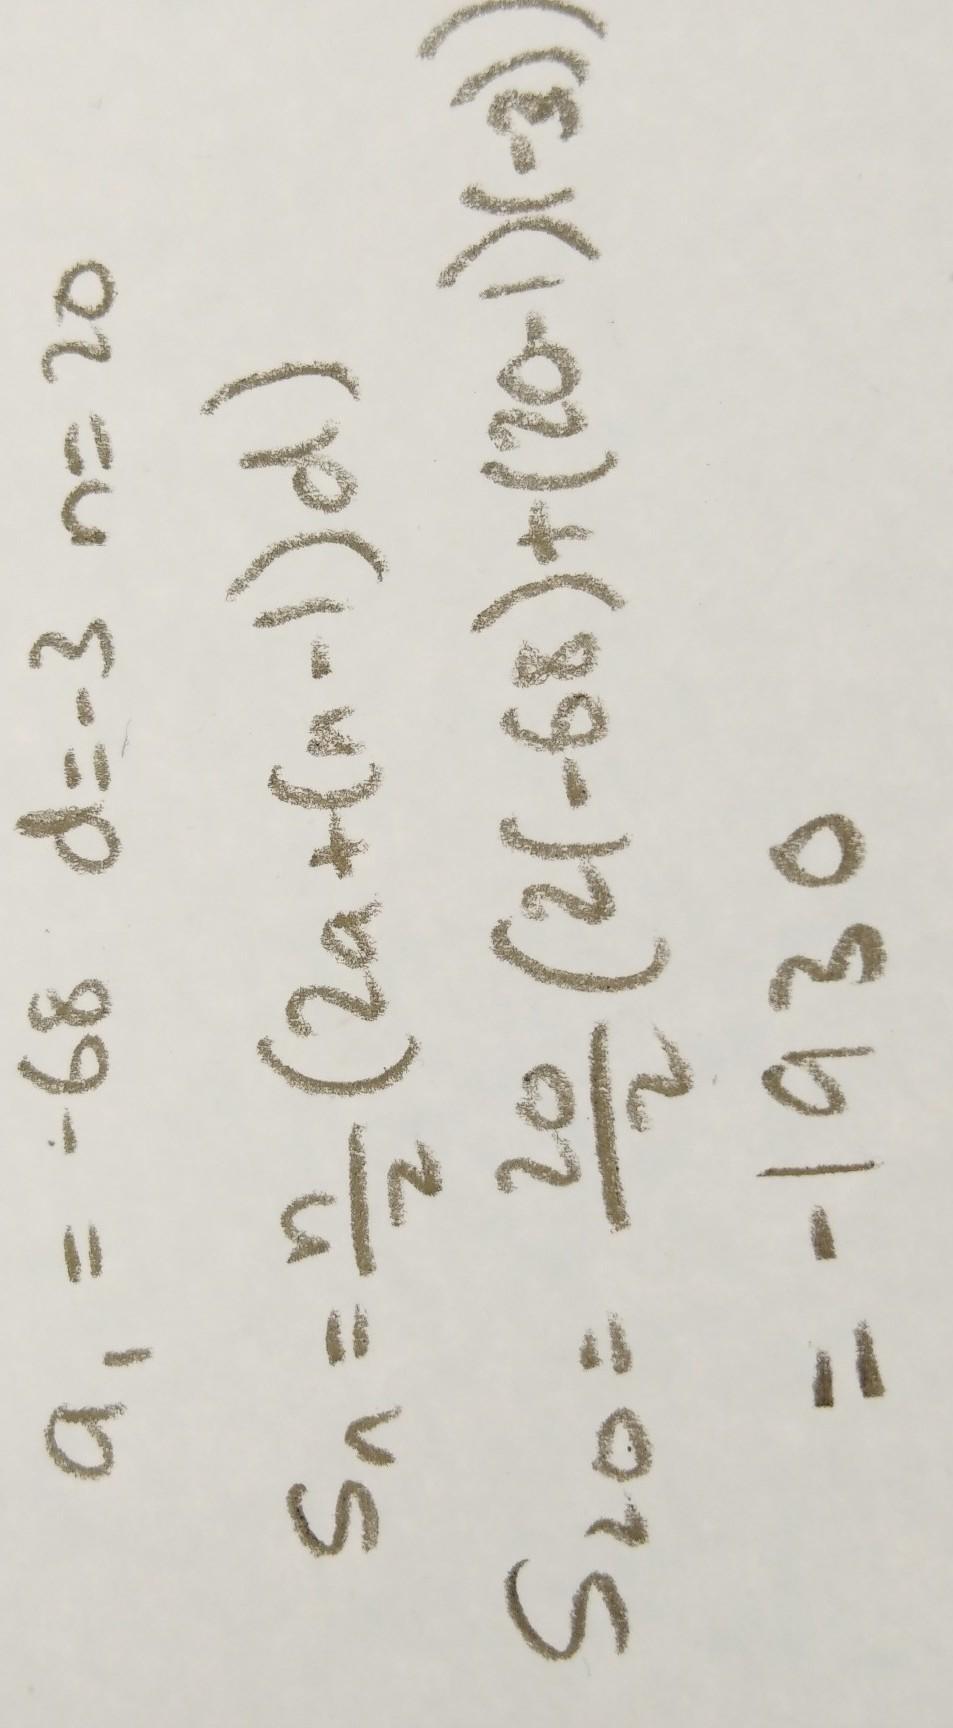 a₁ = -68 d=-3 n=20
Sn = n/2 (2a+(n-1)d)
S20 = 20/2 (2(-68)+(20-1)(-3))
= -1930